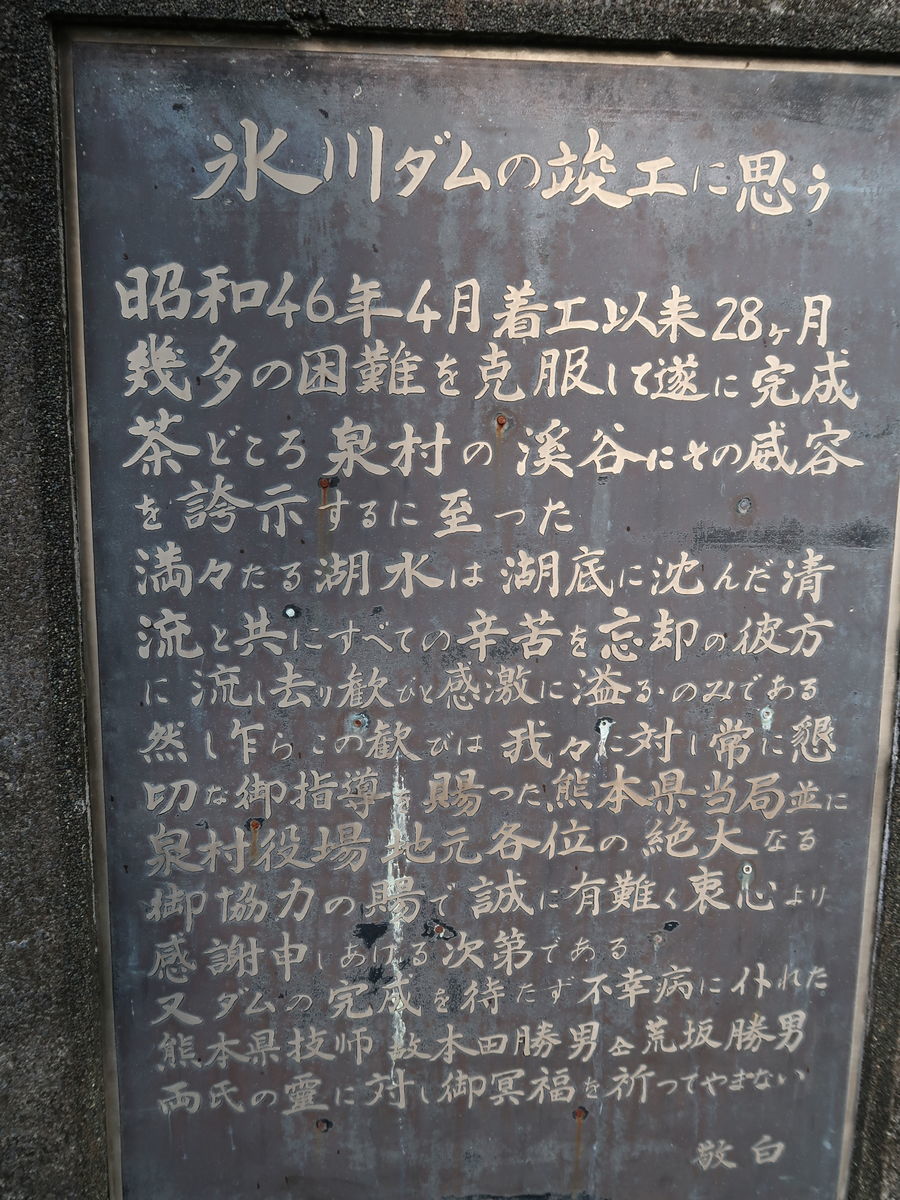 氷川ダムの竣工に思う
昭和46年4月着工以来28ヶ月
幾多の困難を克服して遂に完成
茶どころ泉村の溪谷にその威容
を誇示するに至った
満々たる湖水は湖底に沈んだ清
流と共にすべての辛苦を忘却の彼方
に流し去り歓びと感激に溢るのみである
然し乍らこの歓びは我々に対し常に懇
切な御指導を賜った熊本県当局並に
泉村役場地元各位の絶大なる
御協力の賜で誠に有難く衷心より
感謝申しあげる次第である
又ダムの完成を待たず不幸病に仆れた
熊本県技師故本田勝男仝荒坂勝男
両氏の靈に対し御冥福を祈ってやまない
敬白